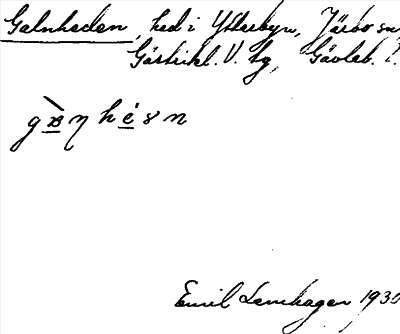 Galnheden, hed i Ytterbyn, Järbo sn,
Gästrikl. V. tg, Gävleb. l.
Emil Lenhagen 193